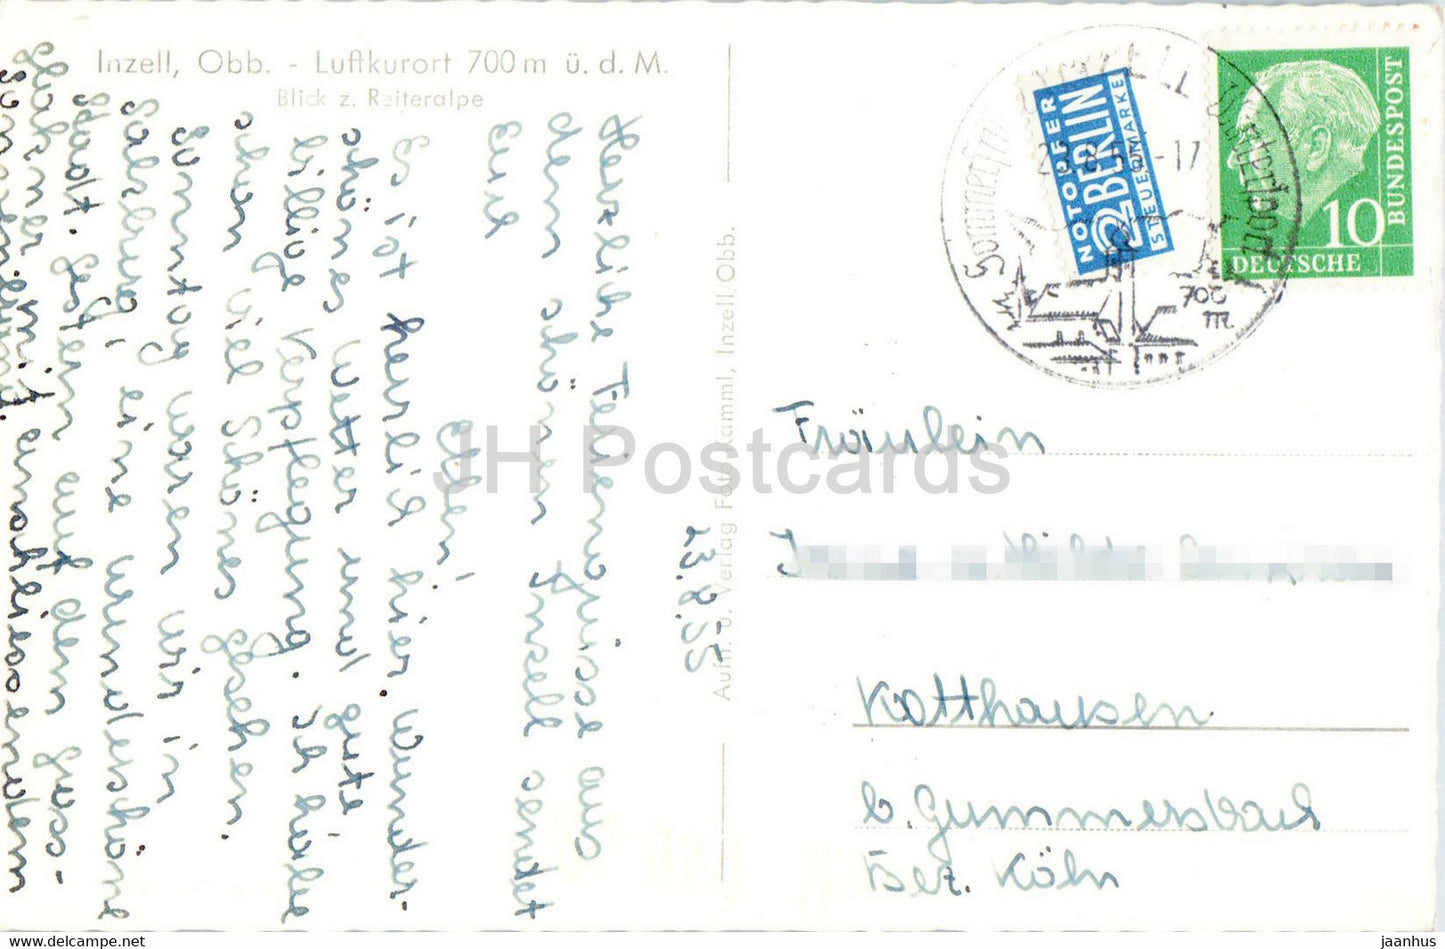 Inzell, Obb. - Luftkurort 700 m ü. d. M.
Blick z. Reiteralpe
23.8.55
Herzliche Feriengrüsse aus
dem schönen Inzell sendet
Eure
Ellen!
Es ist herrlich hier. Wunder-
schönes Wetter und gute
billige Verpflegung. Ich habe
schon viel Schönes gesehen.
Sonntag waren wir in
Salzburg, eine wunderschöne
Stadt. Gestern auf dem Gross-
glockner mit anschliessendem
Aufn. u. Verlag Foto Kamml, Inzell/Obb.
NOTOPFER
2 BERLIN
STEUERMARKE
INZELL
700
m
DEUTSCHE
BUNDESPOST
10
Fräulein
Kotthausen
b. Gummersbach
Bez. Köln
JH Postcards
jaanhus